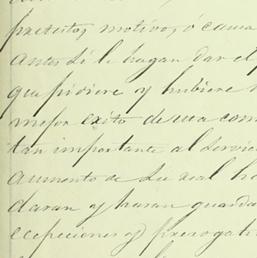 pretesto, motivo, o causa
antes si le hagan dar el
que pidiere y hubiere
mejor exito de una com
tan importante al servic
aumento de su real ha
daran y haran guarda
ecepciones y prerogati